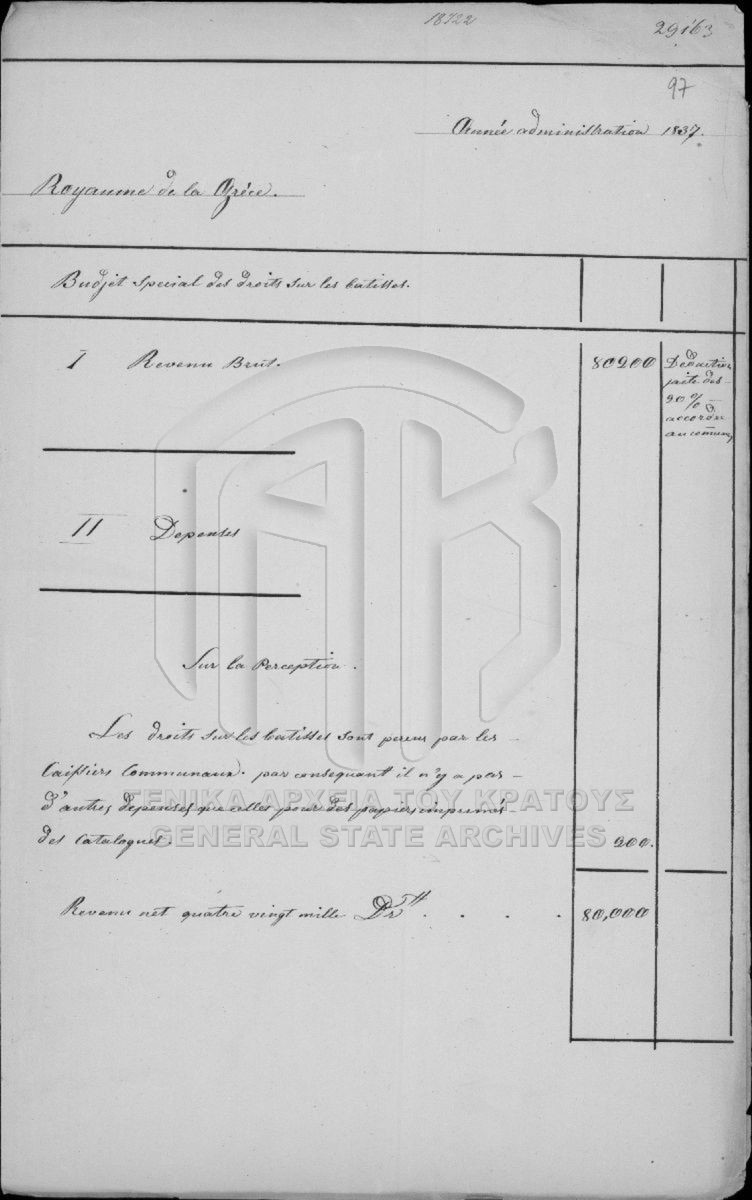 18722
29163
97
Année administration 1837.
Royaume de la Grèce.
Budjet special des droits sur les batisses.
I Revenu Brut. 80200
Deduction
faite des
20%
accordé
au comun
II Depenses
Sur la Perception.
Les droits sur les batisses sont percus par les
Caissiers Communaux. par consequant il n'y a pas
d'autres depenses que celles pour des papiers imprimés
des Catalogues. 200.
Revenu net quatre vingt mille Dr . . . . 80,000
ΓΕΝΙΚΑ ΑΡΧΕΙΑ ΤΟΥ ΚΡΑΤΟΥΣ
GENERAL STATE ARCHIVES